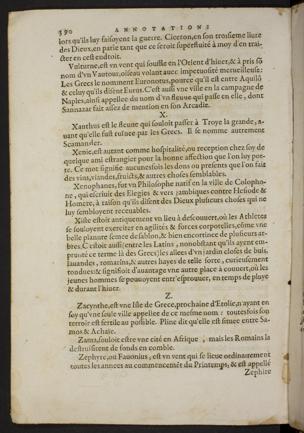 590 ANNOTATIONS
lors qu'ils luy faisoyent la guerre. Ciceron, en son troisieme liure
des Dieux, en parle tant que ce seroit superfluité à moy d'en trai-
ster en cest endroit.
Vulturne, est vn vent qui souffle en l'Orient d'hiuer, & à pris sõ
nom d'vn Vautour, oiseau volant auec impetuosité merueilleuse:
Les Grecs le nomment Euronotus, pource qu'il est entre Aquilõ
& celuy qu'ils disent Eurus. C'est aussi vne ville en la campagne de
Naples, ainsi appellee du nom d'vn fleuue qui passe en elle, dont
Sannazar fait assez de mention en son Arcadie.
X.
Xanthus est le fleuue qui souloit passer à Troye la grande, a-
uant qu'elle fust ruïnee par les Grecs. Il se nomme autrement
Scamander.
Xenie, est autant comme hospitalité, ou reception chez soy de
quelque ami estrangier pour la bonne affection que l'on luy por-
te. Ce mot signifie aucunesfois les dons ou presents que l'on fait
des vins, viandes, fruicts, & autres choses semblables.
Xenophanes, fut vn Philosophe natif en la ville de Colopho-
ne, qui escriuit des Elegies & vers iambiques contre Hesiode &
Homere, à raison qu'ils disent des Dieux plusieurs choses qui ne
luy sembloyent receuables.
Xiste estoit antiquement vn lieu à descouuert, où les Athletes
se souloyent exerciter en agilitès & forces corporelles, cõme vne
belle planure semee de sablon, & bien encortinee de plusieurs ar-
bres. C'estoit aussi (entre les Latins, nonobstant qu'ils ayent em-
prunté ce terme là des Grecs) les allees d'vn iardin closes de buis,
lauandes, romarins, & autres hayes de telle sorte, curieusement
tondues: & signifioit d'auantage vne autre place à couuert, où les
ieunes hommes se pouuoyent entr'esprouuer, en temps de pluye
& durant l'hiuer.
Z.
Zacynthe, est vne Isle de Grece, prochaine d'Etolie, n'ayant en
soy qu'vne seule ville appellee de ce mesme nom: toutesfois son
terroir est fertile au possible. Pline dit qu'elle est situee entre Sa-
mos & Achaïe.
Zama, souloit estre vne cité en Afrique, mais les Romains la
destruisirent de fonds en comble.
Zephyre, ou Fauonius, est vn vent qui se lieue ordinairement
toutes les annees au commencemẽt du Printemps, & est appellé
Zephire